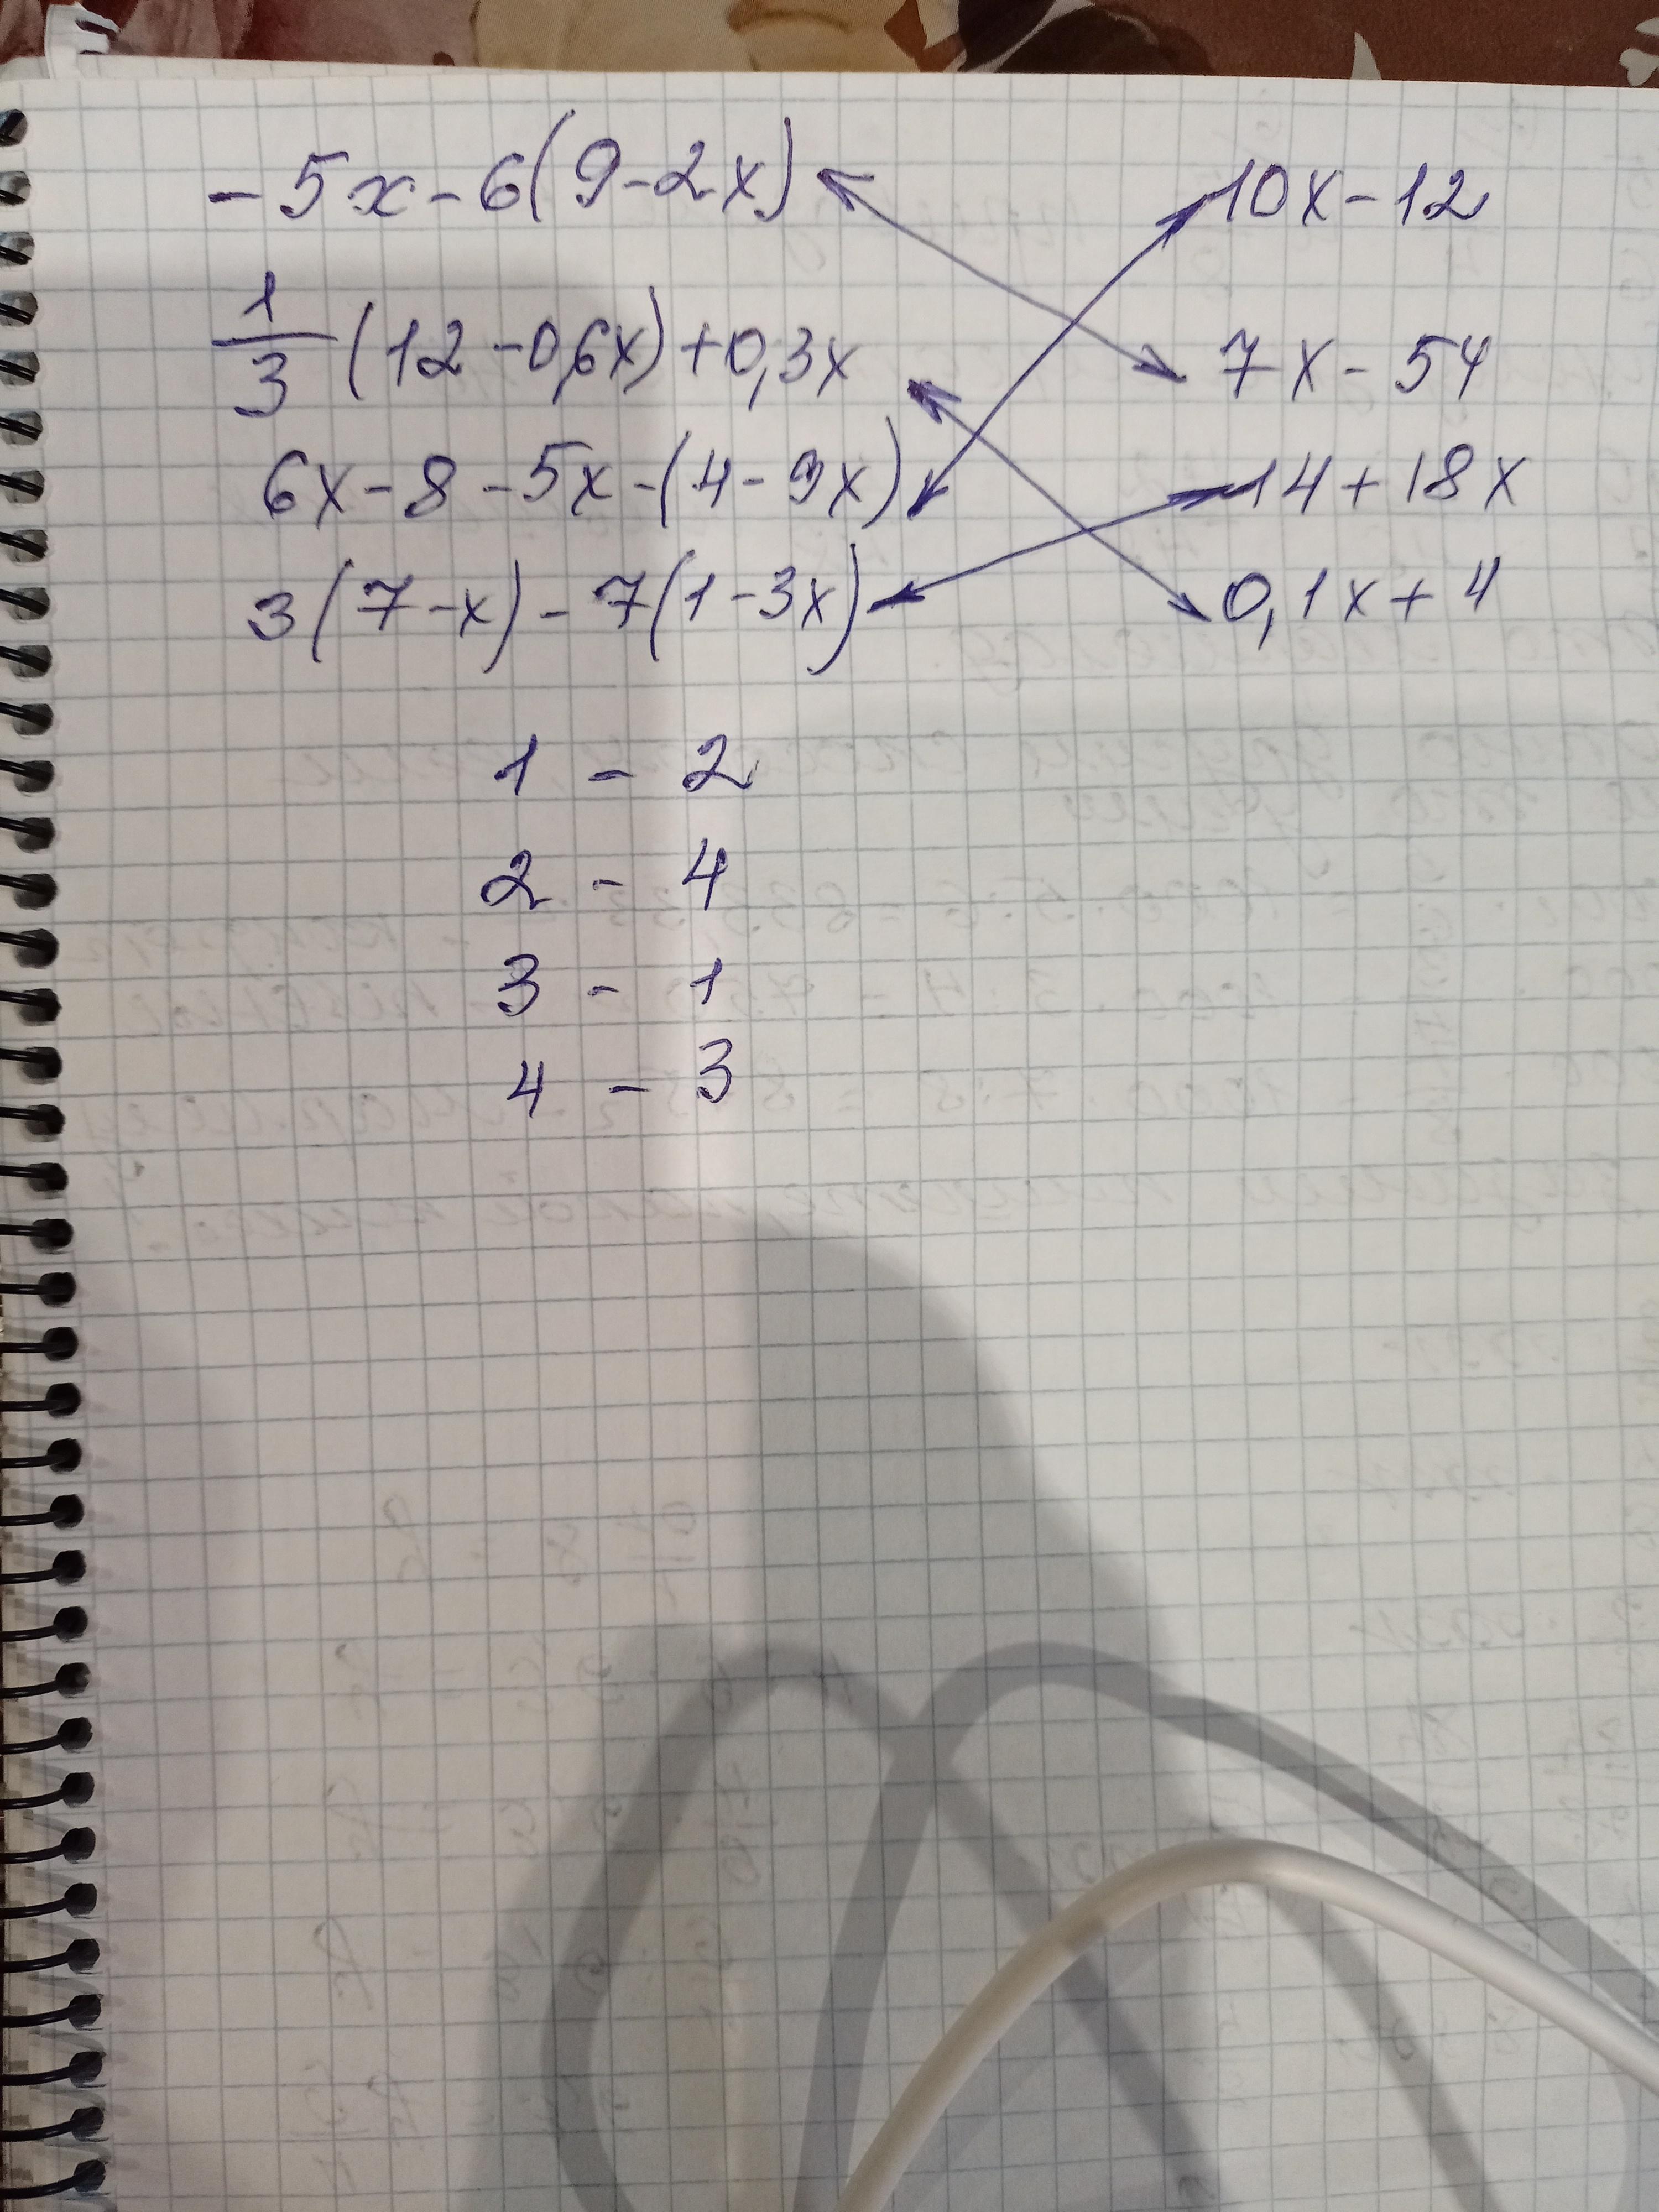 -5x-6(9-2x) 10x-12
1/3 (12-0,6x)+0,3x 7x-54
6x-8-5x-(4-9x) 14+18x
3(7-x)-7(1-3x) 0,1x+4
1 - 2
2 - 4
3 - 1
4 - 3